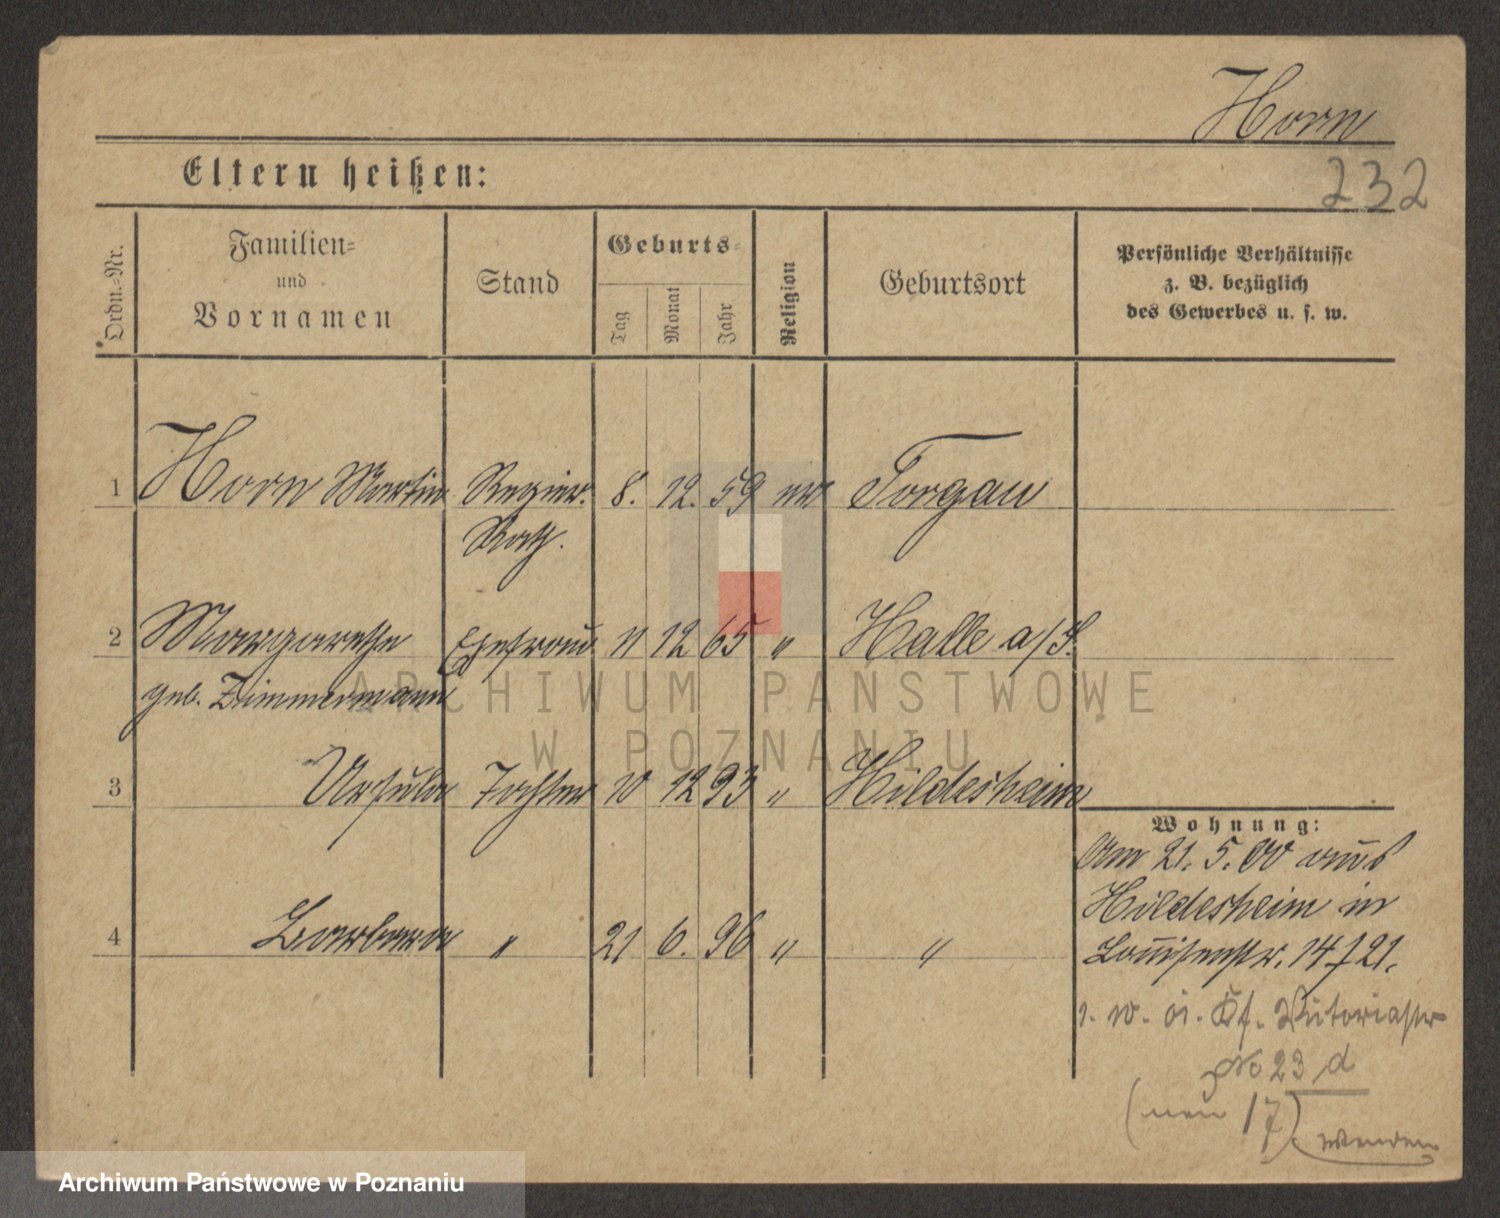 Horn
232
Eltern heißen:
Ordn.-Nr.
Familien-
und
Vornamen
Stand
Geburts-
Tag
Monat
Jahr
Religion
Geburtsort
Persönliche Verhältnisse
z. B. bezüglich
des Gewerbes u. s. w.
1 Horn Martin Regier. 8. 12. 59 ev Torgau
Rath.
2 Margarethe Ehefrau 11 12 65 " Halle a/S.
geb. Zimmermann
ARCHIWUM PAŃSTWOWE
W POZNANIU
3 Ursula Tochter 10 12 93 " Hildesheim
Wohnung:
Am 21. 5. 00 aus
Hildesheim in
4 Barbara " 21 6. 96 " "
Louisenstr. 14 f 21.
Viktoriastr
No 23 d
(neu 17)
wenden
Archiwum Państwowe w Poznaniu